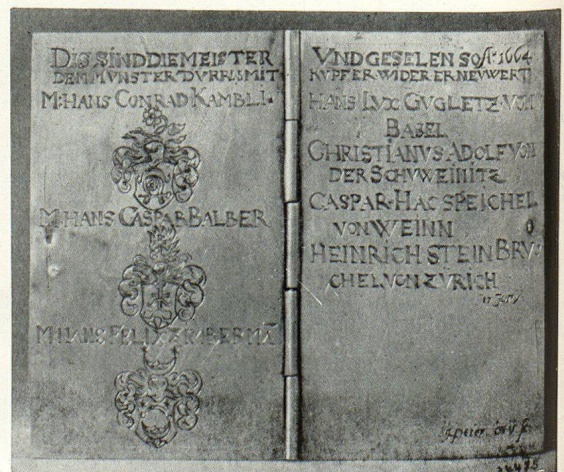 DIS SIND DIE MEISTER
DEM MUNSTER DURRN MIT
M: HANS CONRAD KAMBLI.
M HANS CASPAR BALBER
M HANS FELIX
VND GESELEN SO 1664
KUPFER WIDER ERNEWERT
HANS LVX GVGLETZ VOM
BASEL
CHRISTIANVS ADOLF VON
DER SCHVWEINITZ
CASPAR HACSPEICHEL
VON WEINN
HEINRICH STEINBRV
CHEL VON ZVRICH